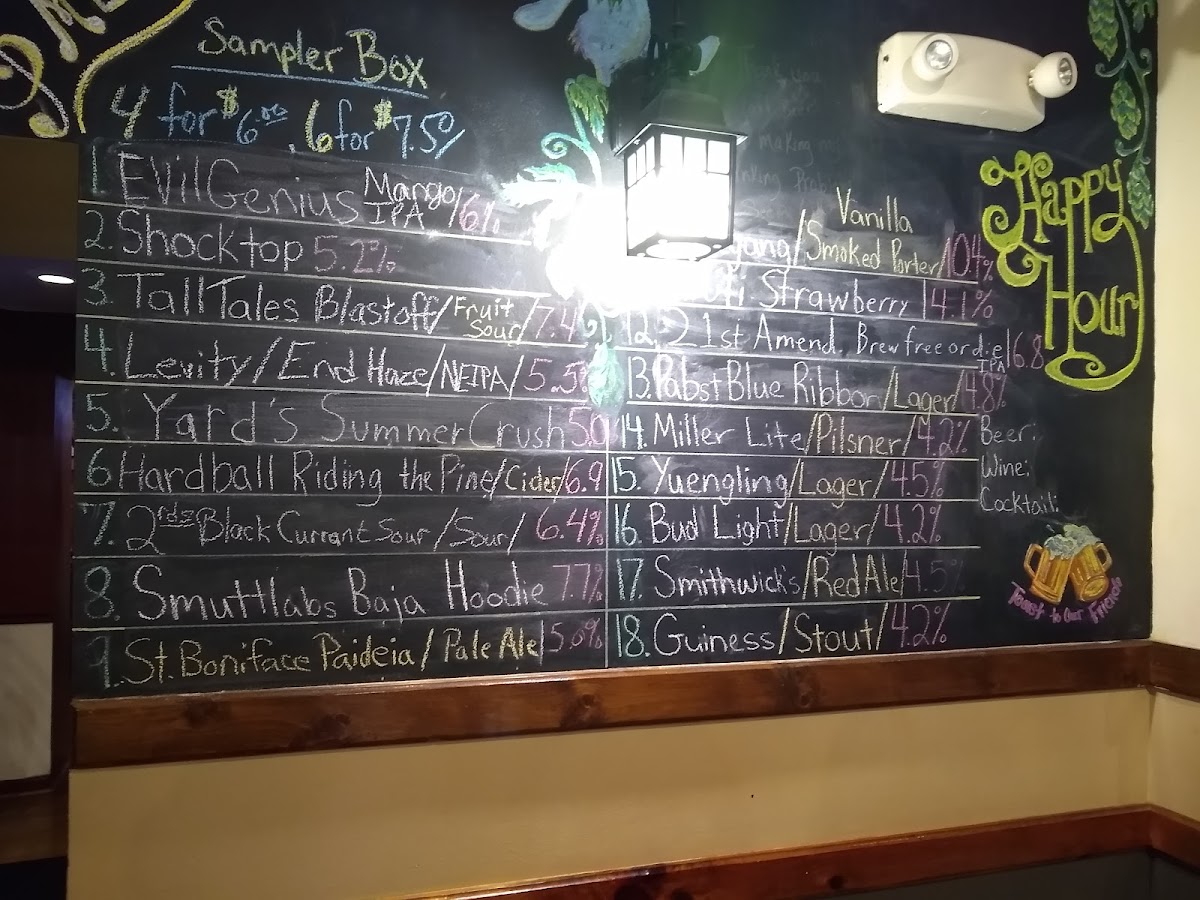 Sampler Box
4 for $6.00 6 for $7.50
1. Evil Genius Mango IPA/6%
2. Shocktop 5.2%
3. Tall Tales Blastoff/Fruit Sour/7.4
4. Levity/End Haze/NEIPA/5.5%
5. Yard's Summer Crush 5.0
6 Hardball Riding the Pine/Cider/6.9
7. 2rdz Black Currant Sour/Sour/6.4%
8. Smuttlabs Baja Hoodie 7.7%
9. St. Boniface Paideia/Pale Ale/5.6%
Vanilla
/Smoked Porter/10.4%
Strawberry 4.1%
12. 21st Amend. Brew free or die IPA/6.8
13. Pabst Blue Ribbon/Lager/4.8%
14. Miller Lite/Pilsner/4.2%
15. Yuengling/Lager/4.5%
16. Bud Light/Lager/4.2%
17. Smithwick's/Red Ale/4.5
18. Guiness/Stout/4.2%
Happy
Hour
Beer:
Wine:
Cocktail:
Toast to Our Friends